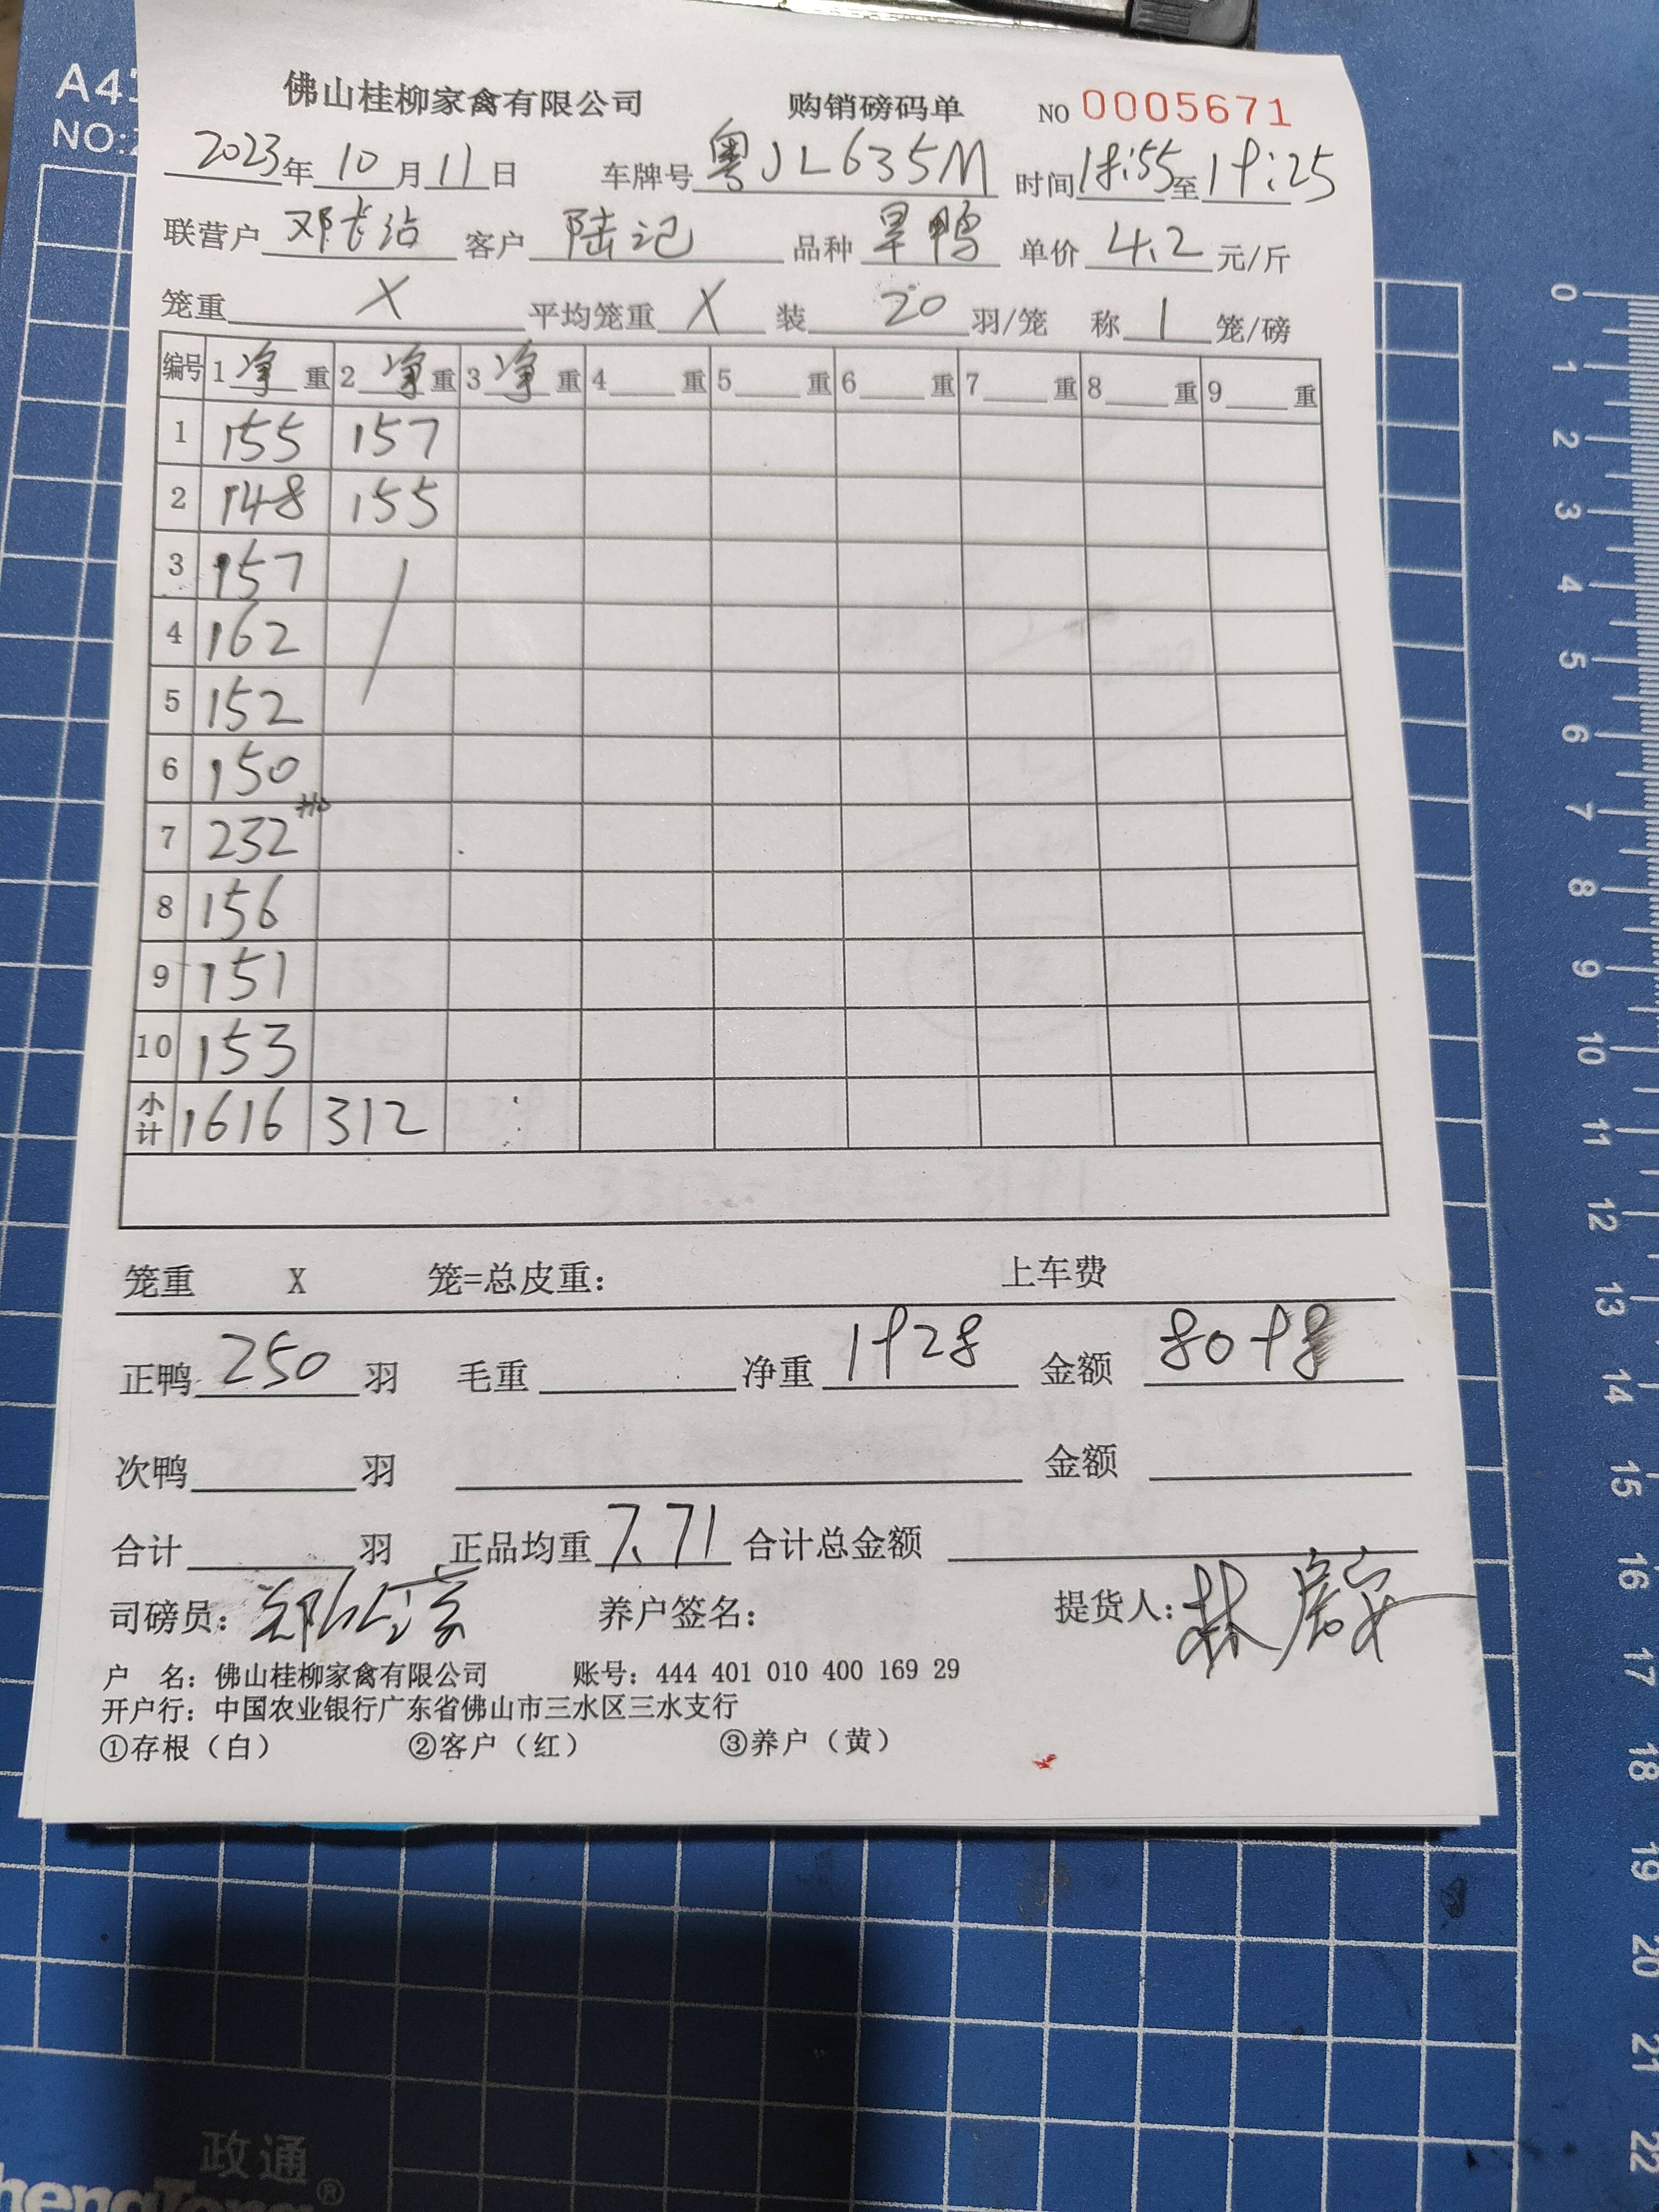 A4
NO:2
佛山桂柳家禽有限公司 购销磅码单 NO 0005671
2023年10月11日 车牌号 粤JL635M 时间 18:55至19:25
联营户 客户 陆记 品种 旱鸭 单价 4.2 元/斤
笼重 X 平均笼重 X 装 20 羽/笼 称 1 笼/磅
编号 1 净 重 2 净 重 3 净 重 4 重 5 重 6 重 7 重 8 重 9 重
1 155 157
2 148 155
3 157
4 162
5 152
6 150
7 232
8 156
9 151
10 153
小计 1616 312
笼重 X 笼=总皮重: 上车费
正鸭 250 羽 毛重 净重 1928 金额 8098
次鸭 羽 金额
合计 羽 正品均重 7.71 合计总金额
司磅员: 养户签名: 提货人: 林
户 名: 佛山桂柳家禽有限公司 账号: 444 401 010 400 169 29
开户行: 中国农业银行广东省佛山市三水区三水支行
①存根（白） ②客户（红） ③养户（黄）
0
1
2
3
4
5
6
7
8
9
10
11
12
13
14
15
16
17
18
19
20
21
22
政通
hengTong®